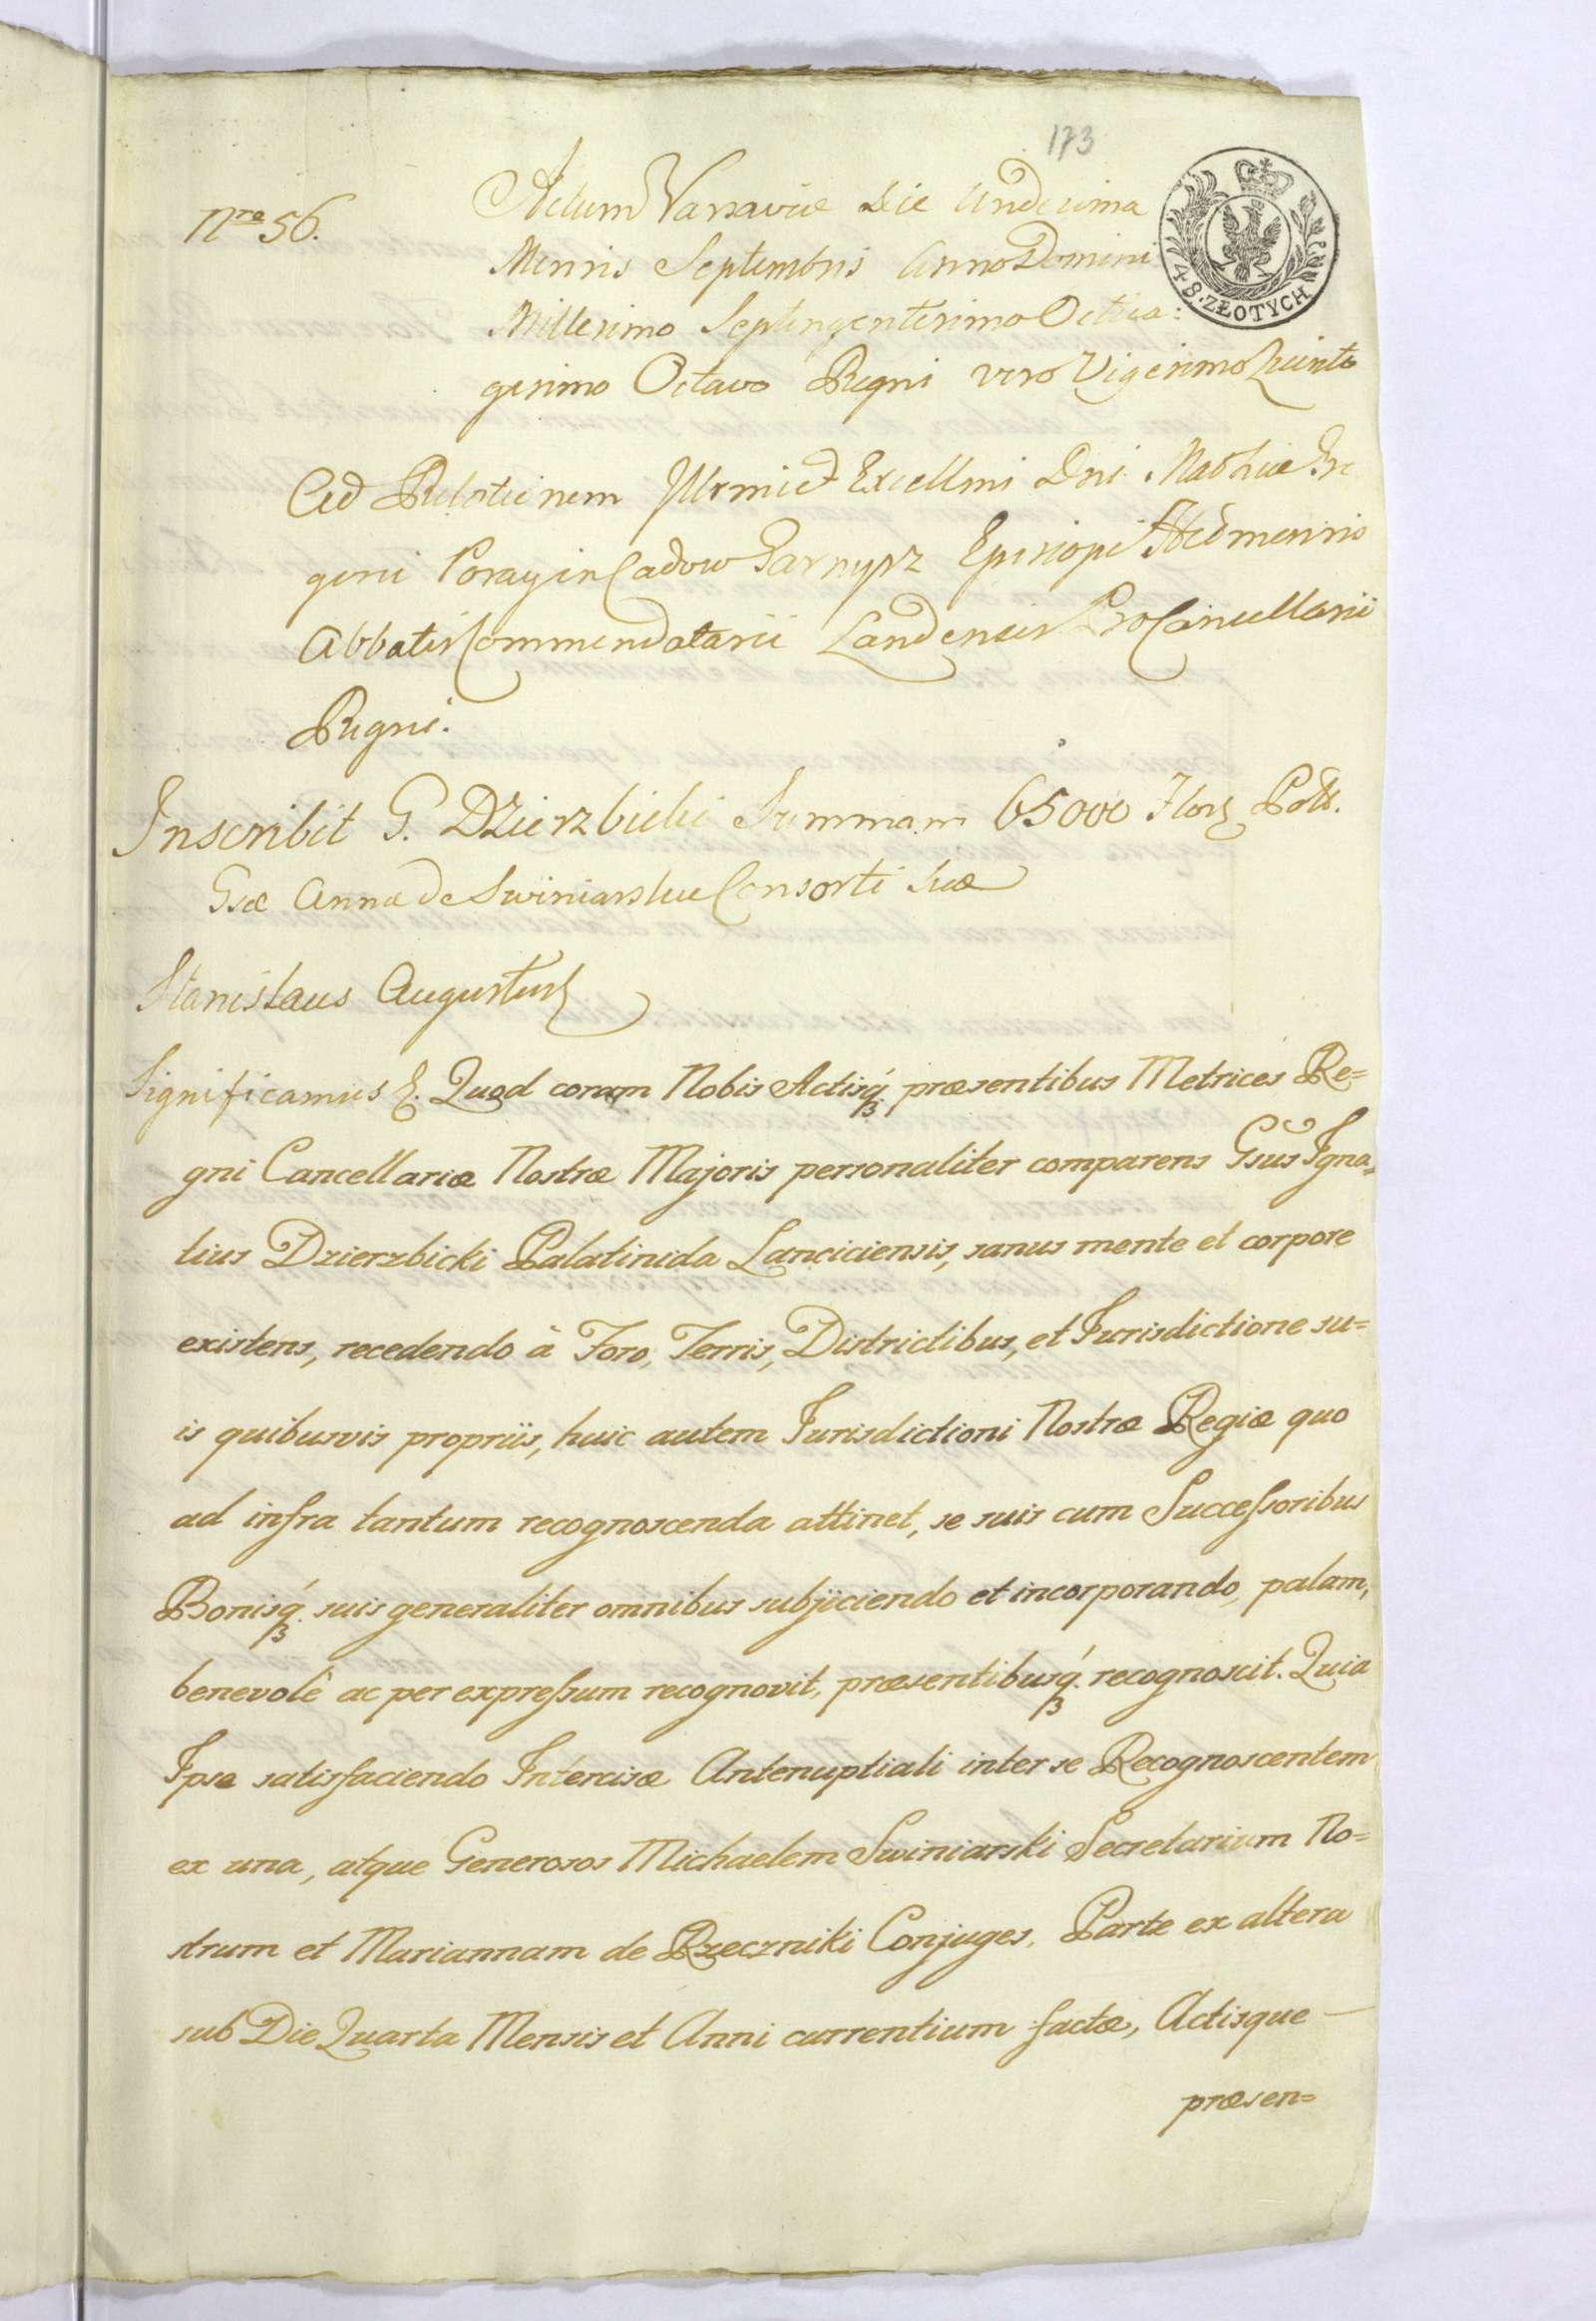 173
Nro 56.
Actum Varsaviæ Die Undecima
Mensis Septembris Anno Domini
Millesimo Septingentesimo Octua:
gesimo Octavo Regni vero Vigesimo Quinto
4 8. ZŁOTYCH
Ad Relationem Illrmi et Excellmi Dni Mathiæ
geni Poray in Radow Garnysz Episcopi
Abbatis Commendatarii Landensis ProCancellarii
Regni.
Inscribit G. Dzierzbicki Summam 65000 Flor. Poll.
Gsæ Annæ de Swiniarskie Consorti Suæ
Stanislaus Augustus
Significamus &. Quod coram Nobis Actisq́ꝫ præsentibus Metrices Re=
gni Cancellariæ Nostræ Majoris personaliter comparens Gsus Igna=
tius Dzierzbicki Palatinida Lanciciensis, sanus mente et corpore
existens, recedendo à Foro, Terris, Districtibus, et Jurisdictione su=
is quibusvis propriis, huic autem Jurisdictioni Nostræ Regiæ quo
ad infra tantum recognoscenda attinet, se suis cum Successoribus
Bonisq́ꝫ suis generaliter omnibus subjiciendo et incorporando, palam,
benevolè ac per expressum recognovit, præsentibusq́ꝫ recognoscit. Quia
Ipse satisfaciendo Intercisæ Antenuptiali inter se Recognoscentem
ex una, atque Generosos Michaelem Swiniarski Secretarium No=
strum et Mariannam de Rzeczniki Conjuges, Parte ex altera
sub Die Quarta Mensis et Anni currentium factæ, Actisque —
præsen=